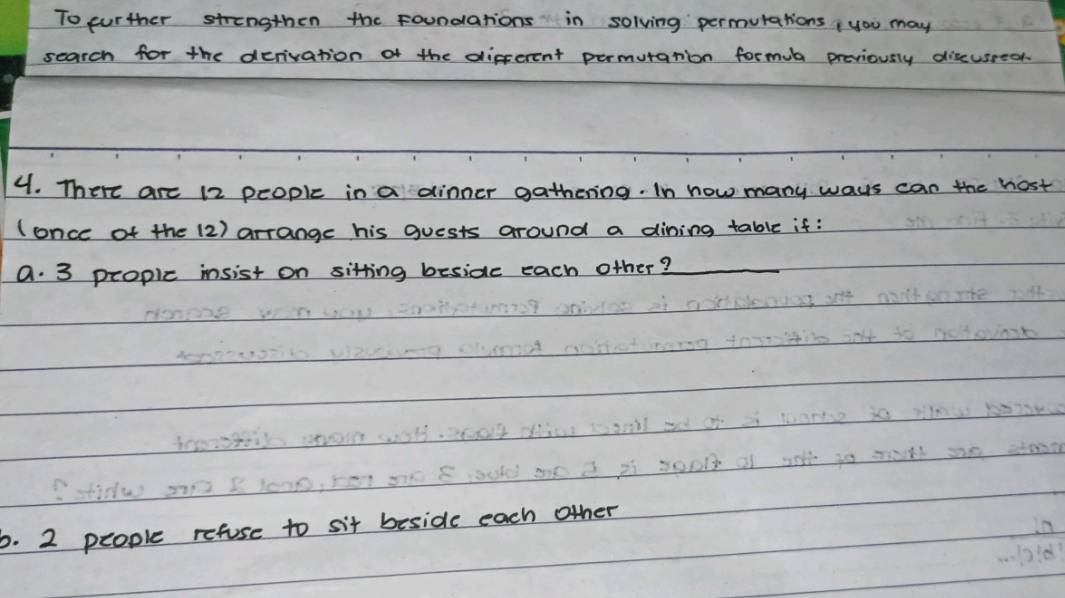 To further strengthen the Foundations in solving permutations, you may
search for the derivation of the different permutation formula previously discussed.
4. There are 12 people in a dinner gathering. In how many ways can the host
(once of the 12) arrange his guests around a dining table if:
a. 3 people insist on sitting beside each other?
b. 2 people refuse to sit beside each other